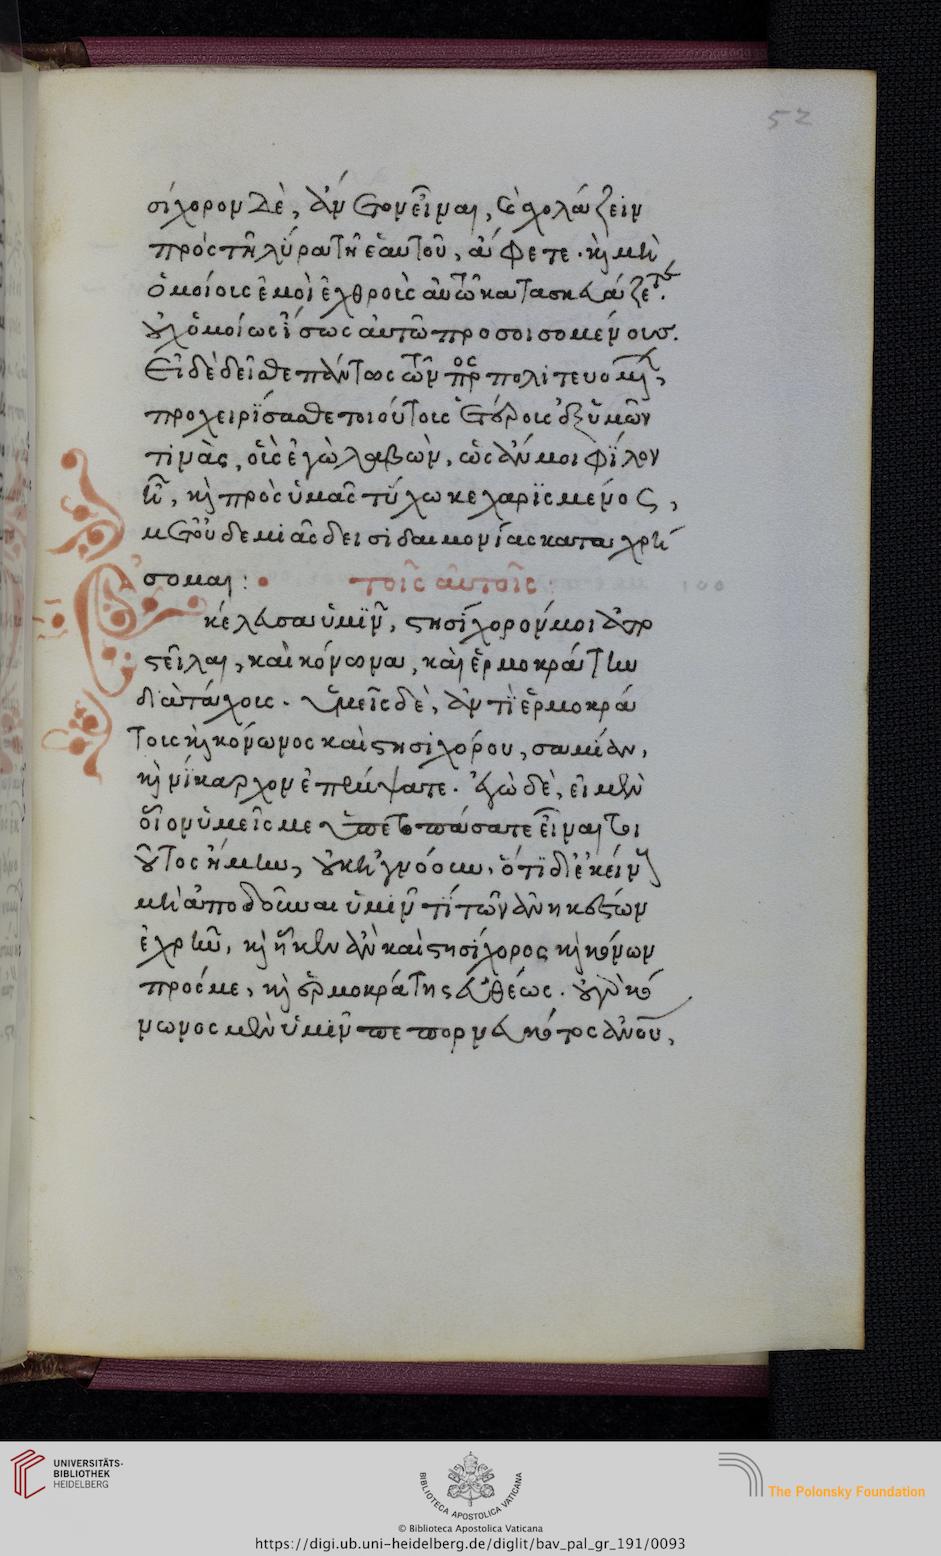 52
σίχορον δὲ, ἀν γονεῖμαι, σχολάζειν
πρὸς τῆ λύρα τῆ ἑαυτοῦ, ἄφετε. κὴ μὴ
ὁμοίοις ἐμοὶ ἐχθροῖς αὐτῶ κατασκευάζετε.
οὐχ ὁμοίως ἴσως αὐτῶ προσοισομένοις.
Εἰ δὲ δεῖσθε πάντως τῶν πρὸς πολιτευομ
προχειρίσασθε ποιούτοις ἑτέροις ἐξ ὑμῶν
τιμὰς, οἷς ἐγὼ λαβὼν, ὡς ἀν μοι φίλον
ἦ, κὴ πρὸς ὑμᾶς τύχω κεχαρισμένος,
μετ' οὐδεμιᾶς δεισιδαιμονίας καταχρή
σομαι: τοῖς αὐτοῖς
100
κέλευσα ὑμῖν, στησίχορόν μοι ἀπο
στεῖλαι, καὶ κόνωνα, καὶ ἑρμοκράτην
δι' ἀπάχοις. ὑμεῖς δὲ, ἀντὶ ἑρμοκρά
τοις κὴ κόνωνος καὶ στησιχόρου, σαμίαν,
κὴ νίκαρχον ἐπέμψατε. ἐγὼ δὲ, εἰ μὲν
οἷον ὑμεῖς με ὑπετοπάσατε εἶναι τοι
οῦτος ἤμην, οὐκ ἠγνόουν, ὅτι δι' ἐκείν
μὴ ἀποδοῦναι ὑμῖν τι τῶν ἀνηκόντων
ἐχρῆν, κὴ ἧκεν ἀν καὶ στησίχορος κὴ κόνων
πρός με, κὴ ἑρμοκράτης εὐθέως. οὐ γὰρ κό
νωνος μὲν ὑμῖν πεπορνευκότος ἀνοῦ,
UNIVERSITÄTS-
BIBLIOTHEK
HEIDELBERG
BIBLIOTECA APOSTOLICA VATICANA
The Polonsky Foundation
© Biblioteca Apostolica Vaticana
https://digi.ub.uni-heidelberg.de/diglit/bav_pal_gr_191/0093